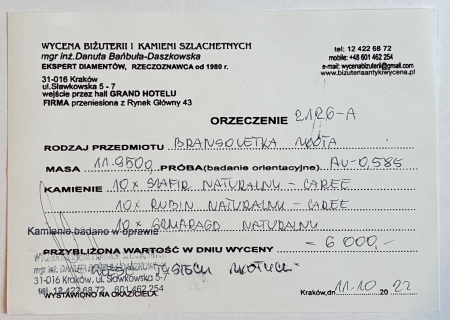 WYCENA BIŻUTERII I KAMIENI SZLACHETNYCH
mgr inż.Danuta Bańbuła-Daszkowska
EKSPERT DIAMENTÓW, RZECZOZNAWCA od 1980 r.
tel: 12 422 68 72
mobile: +48 601 462 254
e-mail: wycenabizuterii@gmail.com
www.bizuteriaantykiwycena.pl
31-016 Kraków
ul.Sławkowska 5 - 7
wejście przez hall GRAND HOTELU
FIRMA przeniesiona z Rynek Główny 43
ORZECZENIE 2126-A
RODZAJ PRZEDMIOTU BRANSOLETKA ZŁOTA
MASA 11.950g PRÓBA(badanie orientacyjne) AU-0,585
KAMIENIE 10x SZAFIR NATURALNY - CAREE
10x RUBIN NATURALNY - CAREE
10x SZMARAGD NATURALNY
Kamienie badano w oprawie
PRZYBLIŻONA WARTOŚĆ W DNIU WYCENY = 6 000,-
TYSIĘCY ZŁOTYCH
31-016 Kraków, ul. Sławkowska 5-7
12 422 68 72 601 462 254
WYSTAWIONO NA OKAZICIELA.
Kraków,dn 11.10 20 22